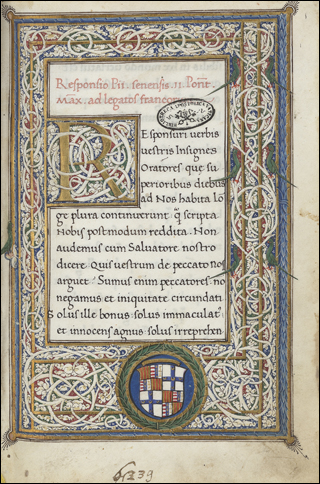 Responsio Pii senensis II Pont
Max. ad legatos franc
R
Esponsuri verbis
vestris Insignes
Oratores que su
perioribus diebus
ad Nos habita lo
ge plura continuerunt q̃ scripta
Nobis postmodum reddita. Non
audemus cum Salvatore nostro
dicere. Quis vestrum de peccato nos
arguet. Sumus enim peccatores. no
negamus et iniquitate circundati
Solus ille bonus. solus immaculatˢ
et innocens agnus. solus irreprehen
239